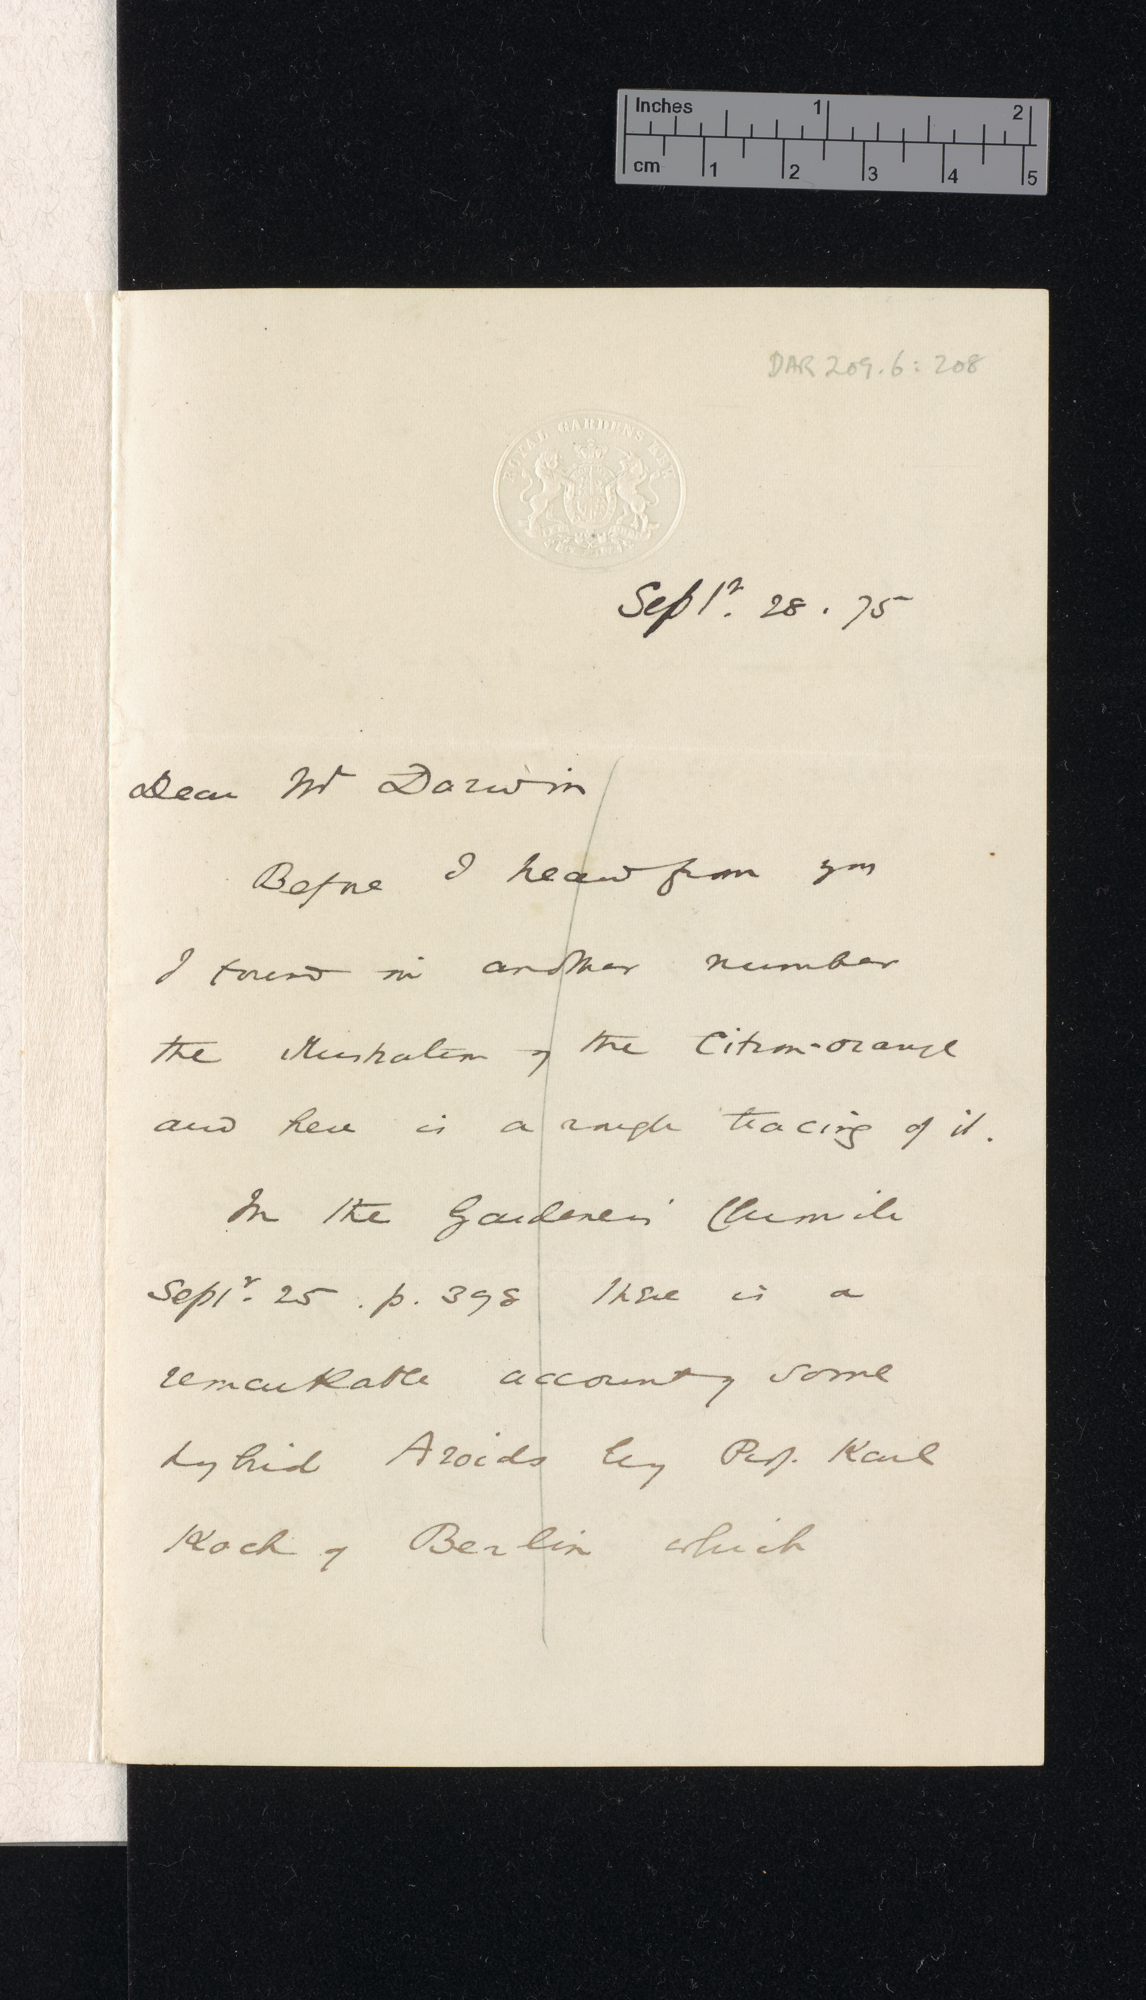 Inches 1 2
cm 1 2 3 4 5
DAR 209.6: 208
ROYAL GARDENS KEW
Septr. 28. 75
Dear Mr Darwin
Before I heard from you
I found in another number
the illustration of the Citron-orange
and here is a rough tracing of it.
In the Gardener's Chronicle
Septr. 25. p. 398 there is a
remarkable account of some
hybrid Aroids by Prof. Karl
Koch of Berlin which